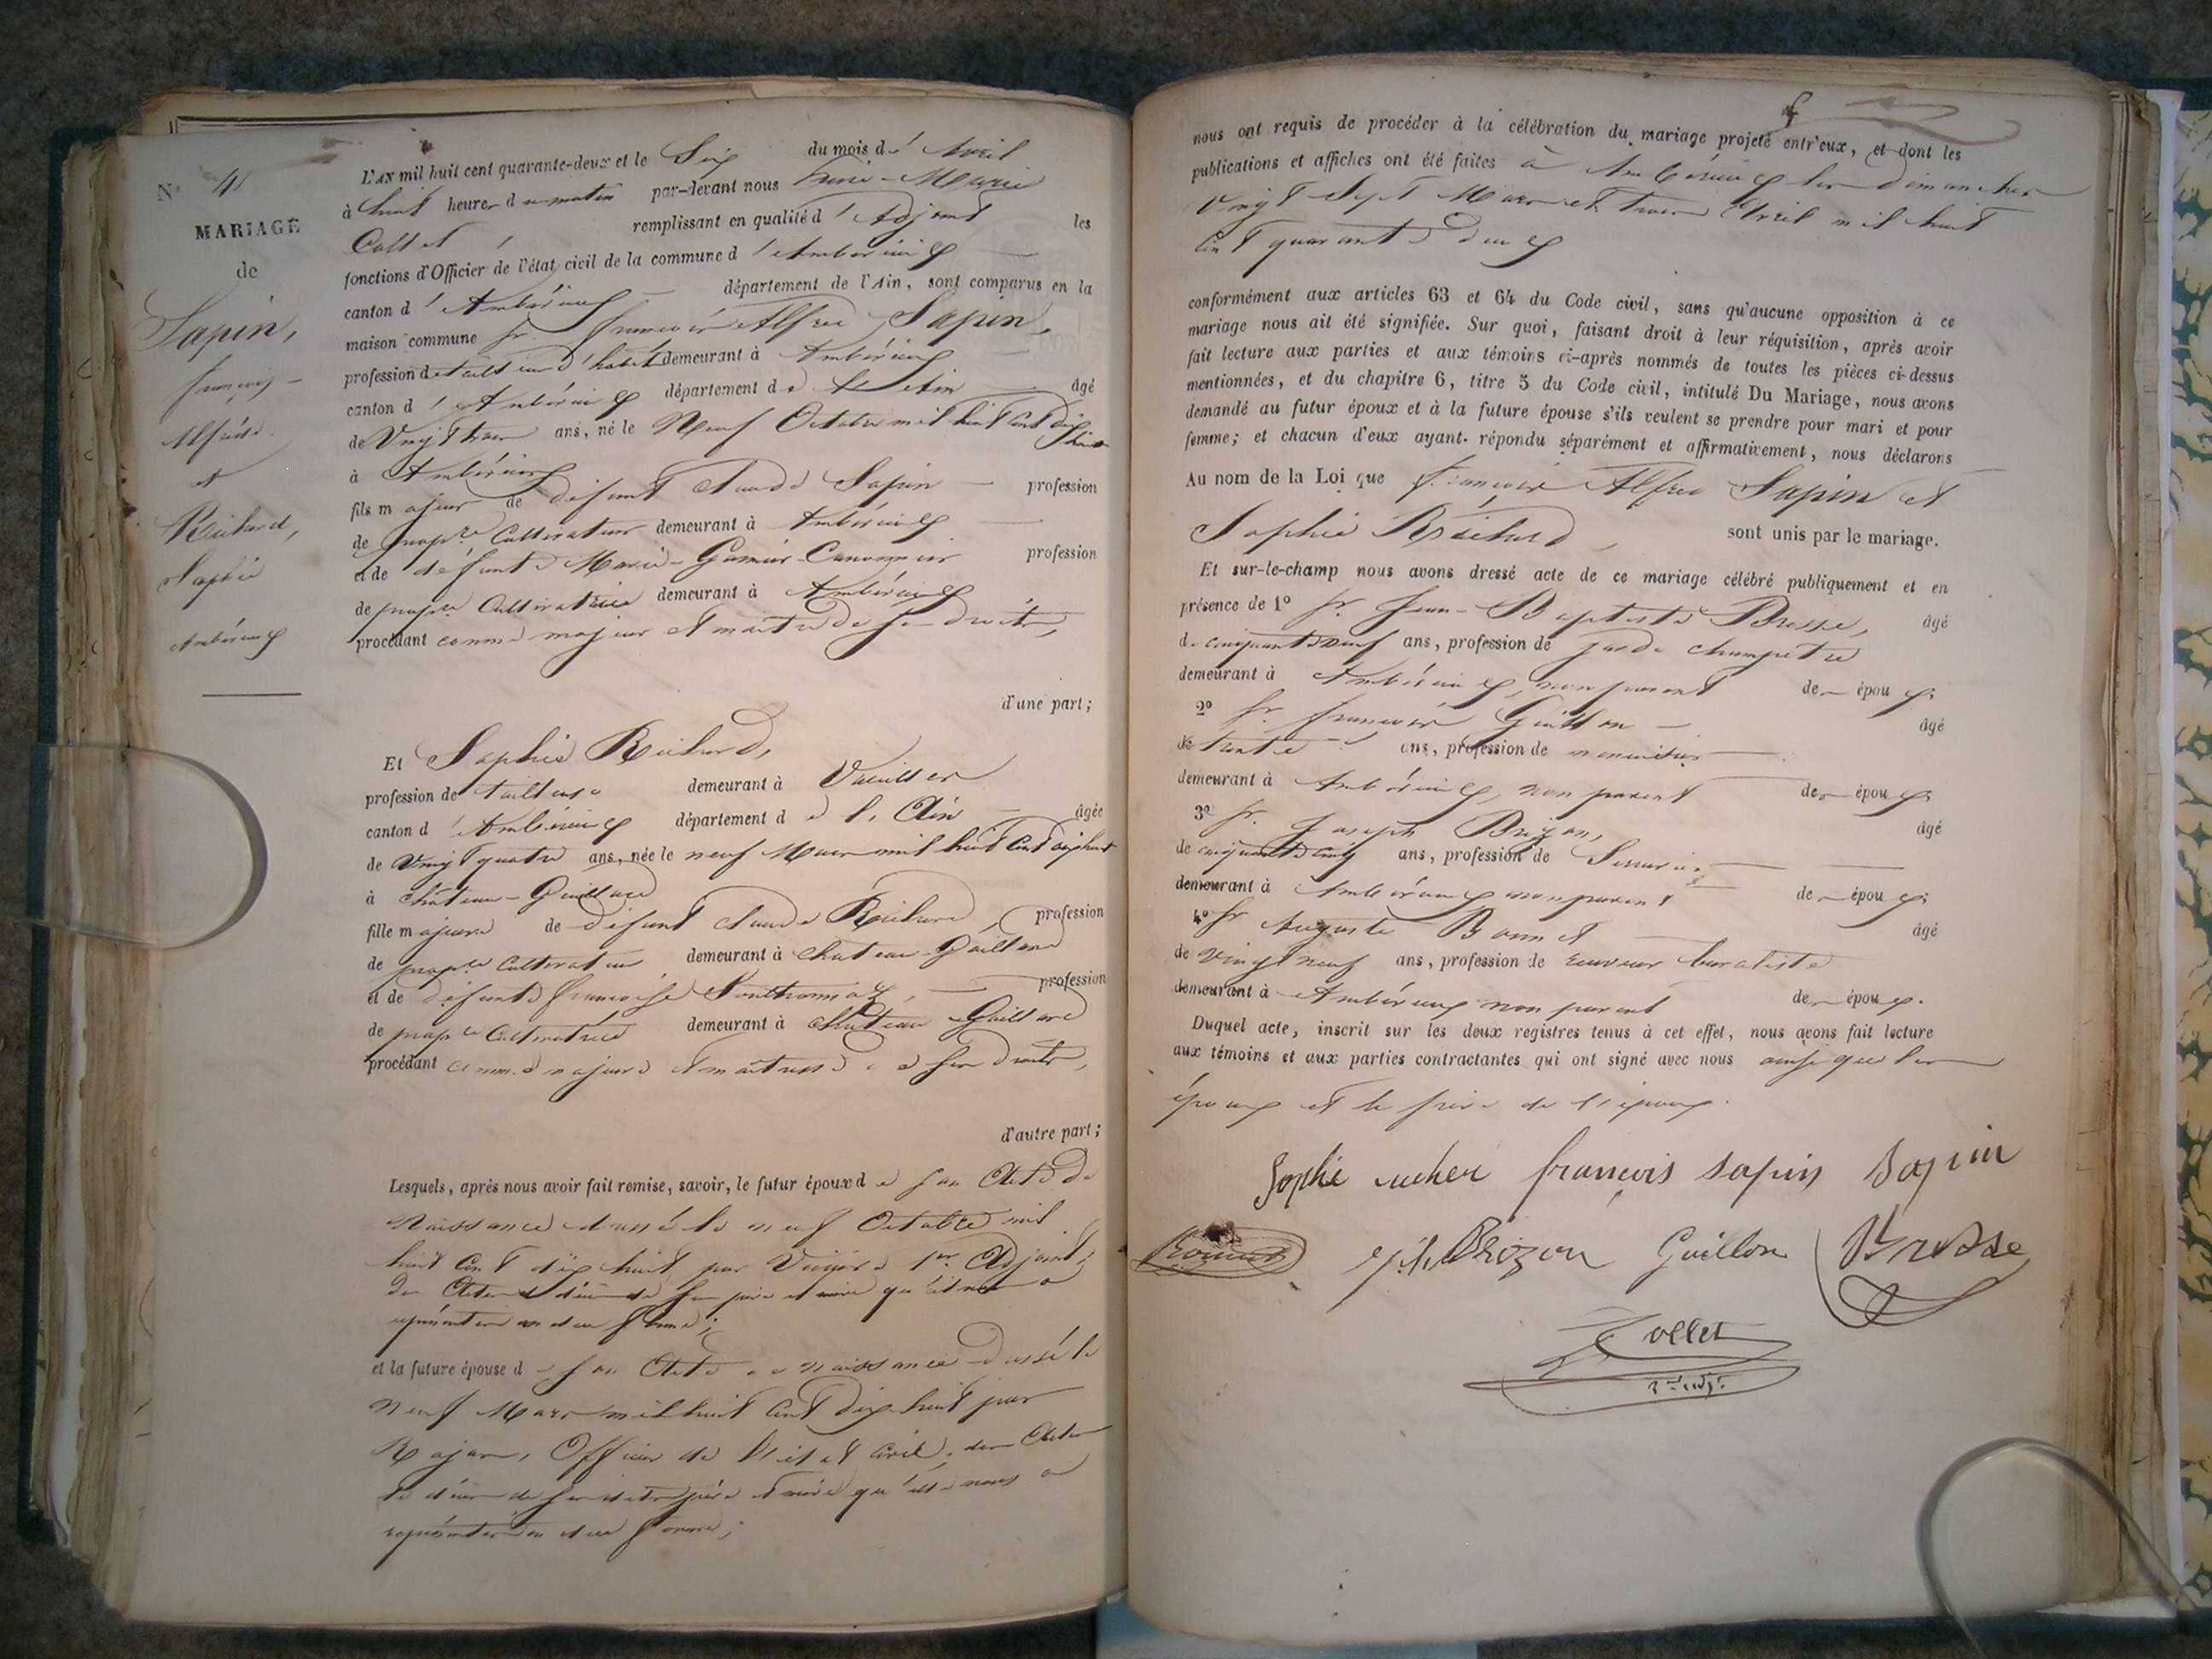 N° 4
MARIAGE
de
Sapin,
françois
Alfred.
et
Richard,
Sophie
Ambérieux
L'AN mil huit cent quarante-deux et le Six du mois d'Avril
à huit heures du matin par-devant nous Marie
Collet remplissant en qualité d'Adjoint les
fonctions d'Officier de l'état civil de la commune d'Ambérieux
canton d'Ambérieux département de l'Ain, sont comparus en la
maison commune Sr. françois Alfred Sapin,
profession de tailleur d'habit demeurant à Ambérieux
canton d'Ambérieux département de l'Ain âgé
de Vingt trois ans, né le Neuf Octobre mil huit cent dix huit
à Ambérieux
fils majeur de défunt Claude Sapin profession
de prop.re Cultivateur demeurant à Ambérieux
et de défunte Marie profession
de prop.re Cultivatrice demeurant à Ambérieux
procédant comme majeur et maître de ses droits,
d'une part;
Et Sophie Richard,
profession de tailleuse demeurant à
canton d'Ambérieux département de l'Ain âgée
de Vingt quatre ans, née le neuf Mars mil huit Cent dix huit
à Château-Gaillard
fille majeure de défunt Claude Richard, profession
de prop.re Cultivateur demeurant à Chateau-Gaillard
et de défunte françoise profession
de prop.re Cultivatrice demeurant à Château-Gaillard
procédant comme majeure et maîtresse de ses droits,
d'autre part;
Lesquels, après nous avoir fait remise, savoir, le futur époux de son Acte de
Naissance dressé le neuf Octobre mil
huit Cent dix huit par 1er Adjoint;
Des Actes de décès de ses père et mère qu'il nous a
représentés en due forme;
et la future épouse de son Acte de naissance dressé le
neuf Mars mil huit Cent dix huit par
Officier de l'état Civil; des Actes
de décès de ses dits père et mère qu'elle nous a
représentés en due forme;
nous ont requis de procéder à la célébration du mariage projeté entr'eux, et dont les
publications et affiches ont été faites à Ambérieux les dimanches
Vingt Sept Mars et trois Avril mil huit
Cent quarante deux
conformément aux articles 63 et 64 du Code civil, sans qu'aucune opposition à ce
mariage nous ait été signifiée. Sur quoi, faisant droit à leur réquisition, après avoir
fait lecture aux parties et aux témoins ci-après nommés de toutes les pièces ci-dessus
mentionnées, et du chapitre 6, titre 5 du Code civil, intitulé Du Mariage, nous avons
demandé au futur époux et à la future épouse s'ils veulent se prendre pour mari et pour
femme; et chacun d'eux ayant répondu séparément et affirmativement, nous déclarons
Au nom de la Loi que françois Alfred Sapin et
Sophie Richard, sont unis par le mariage.
Et sur-le-champ nous avons dressé acte de ce mariage célébré publiquement et en
présence de 1° Sr. Jean-Baptiste Brosse, âgé
de cinquante neuf ans, profession de garde champetre
demeurant à Ambérieux, non parent des époux;
2° Sr. françois Guillon âgé
de trente ans, profession de menuisier
demeurant à Ambérieux, non parent des époux;
3° Sr. Joseph Brizon, âgé
de cinquante cinq ans, profession de Serrurier
demeurant à Ambérieux non parent des époux;
4° Sr Auguste Bonnet âgé
de Vingt neuf ans, profession de receveur buraliste
demeurant à Ambérieux non parent des époux.
Duquel acte, inscrit sur les deux registres tenus à cet effet, nous avons fait lecture
aux témoins et aux parties contractantes qui ont signé avec nous ainsi que les
époux et le frère de l'époux.
Sophie françois sapin Sapin
Brizon Guillon Brosse
Collet